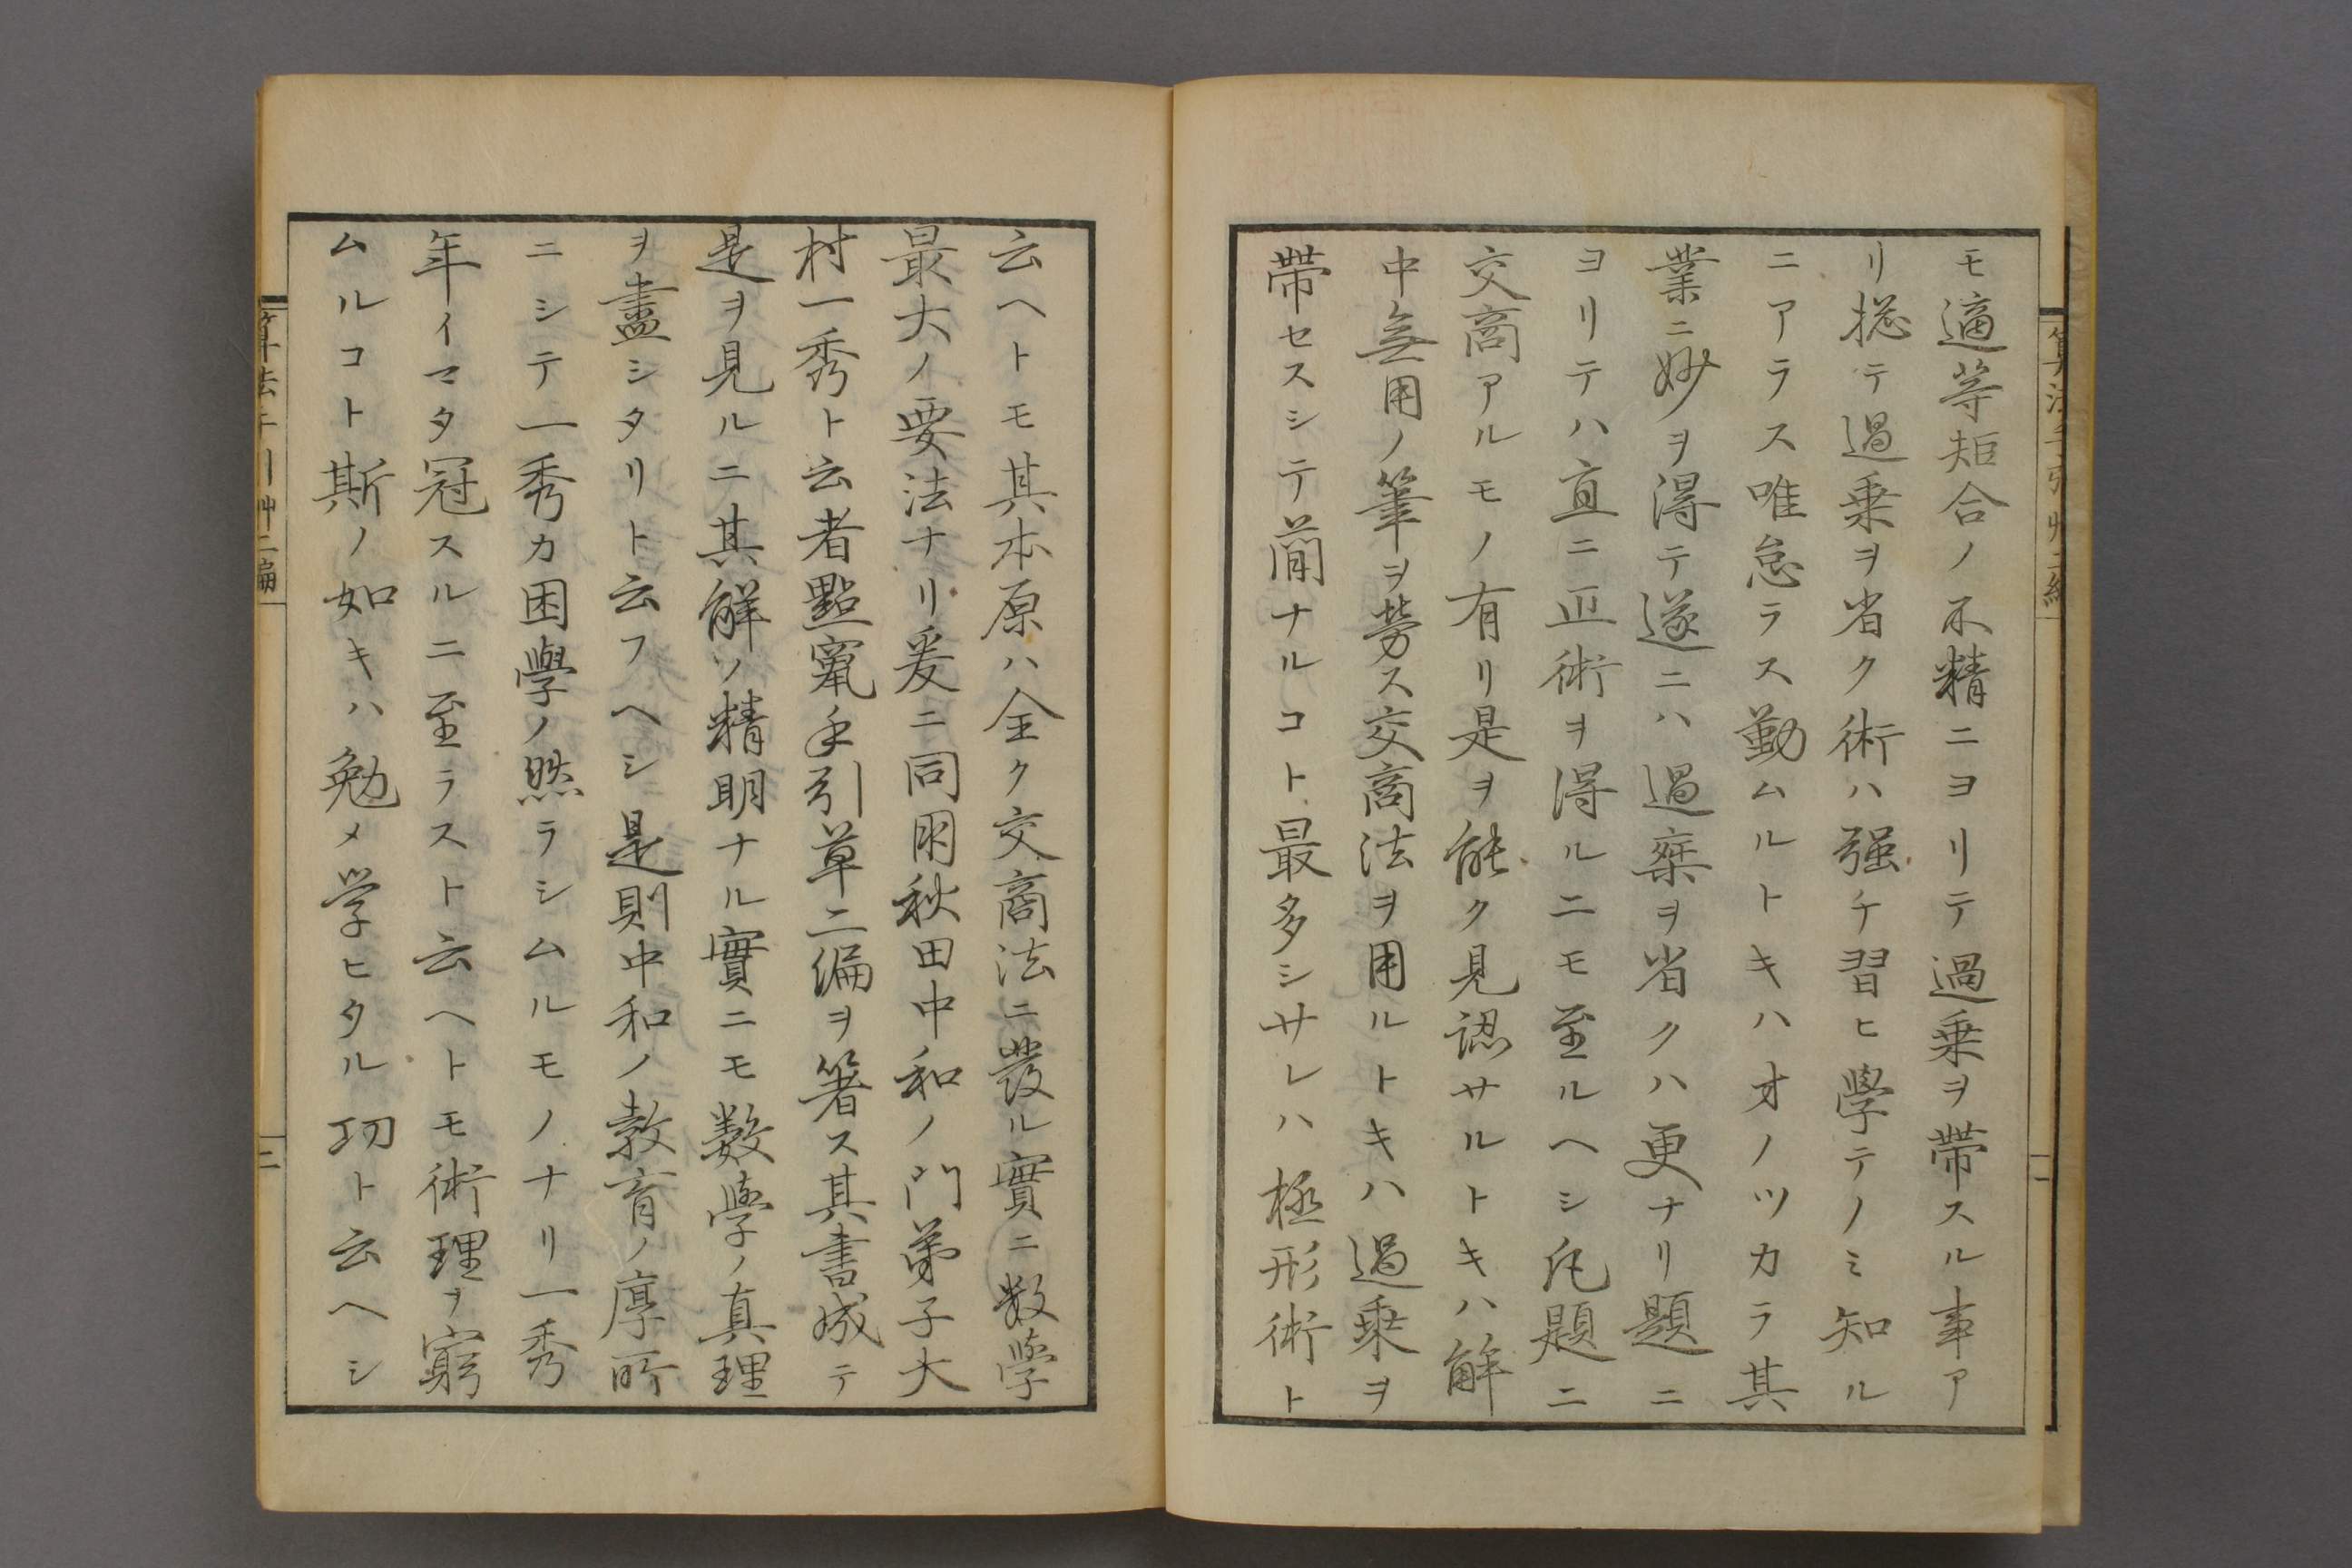 モ適等矩合ノ不精ニヨリテ過乗ヲ帶スル事ア
リ揔テ過乗ヲ省ク術ハ强チ習ヒ學テノミ知ル
ニアラス唯怠ラス勤ムルトキハオノツカラ其
業ニ妙ヲ得テ遂ニハ過乗ヲ省クハ更ナリ題ニ
ヨリテハ直ニ正術ヲ得ルニモ至ルヘシ凡題ニ
交商アルモノ有リ是ヲ能ク見認サルトキハ解
中無用ノ筆ヲ勞ス交商法ヲ用ルトキハ過乗ヲ
帶セスシテ簡ナルコト最多シサレハ極形術ト
云ヘトモ其本原ハ全ク交商法ニ發ル實ニ数学
最大ノ要法ナリ爰ニ同國秋田中和ノ門弟子大
村一秀ト云者點竄手引草二編ヲ箸ス其書成テ
是ヲ見ルニ其解ソ精明ナル實ニモ数學ノ真理
ヲ盡シタリト云フヘシ是則中和ノ敎育ノ厚所
ニシテ一秀カ困學ノ然ラシムルモノナリ一秀
年イマタ冠スルニ至ラスト云ヘトモ術理ヲ窮
ムルコト斯ノ如キハ勉メ学ヒタル功ト云ヘシ
算法手引艸二編
三